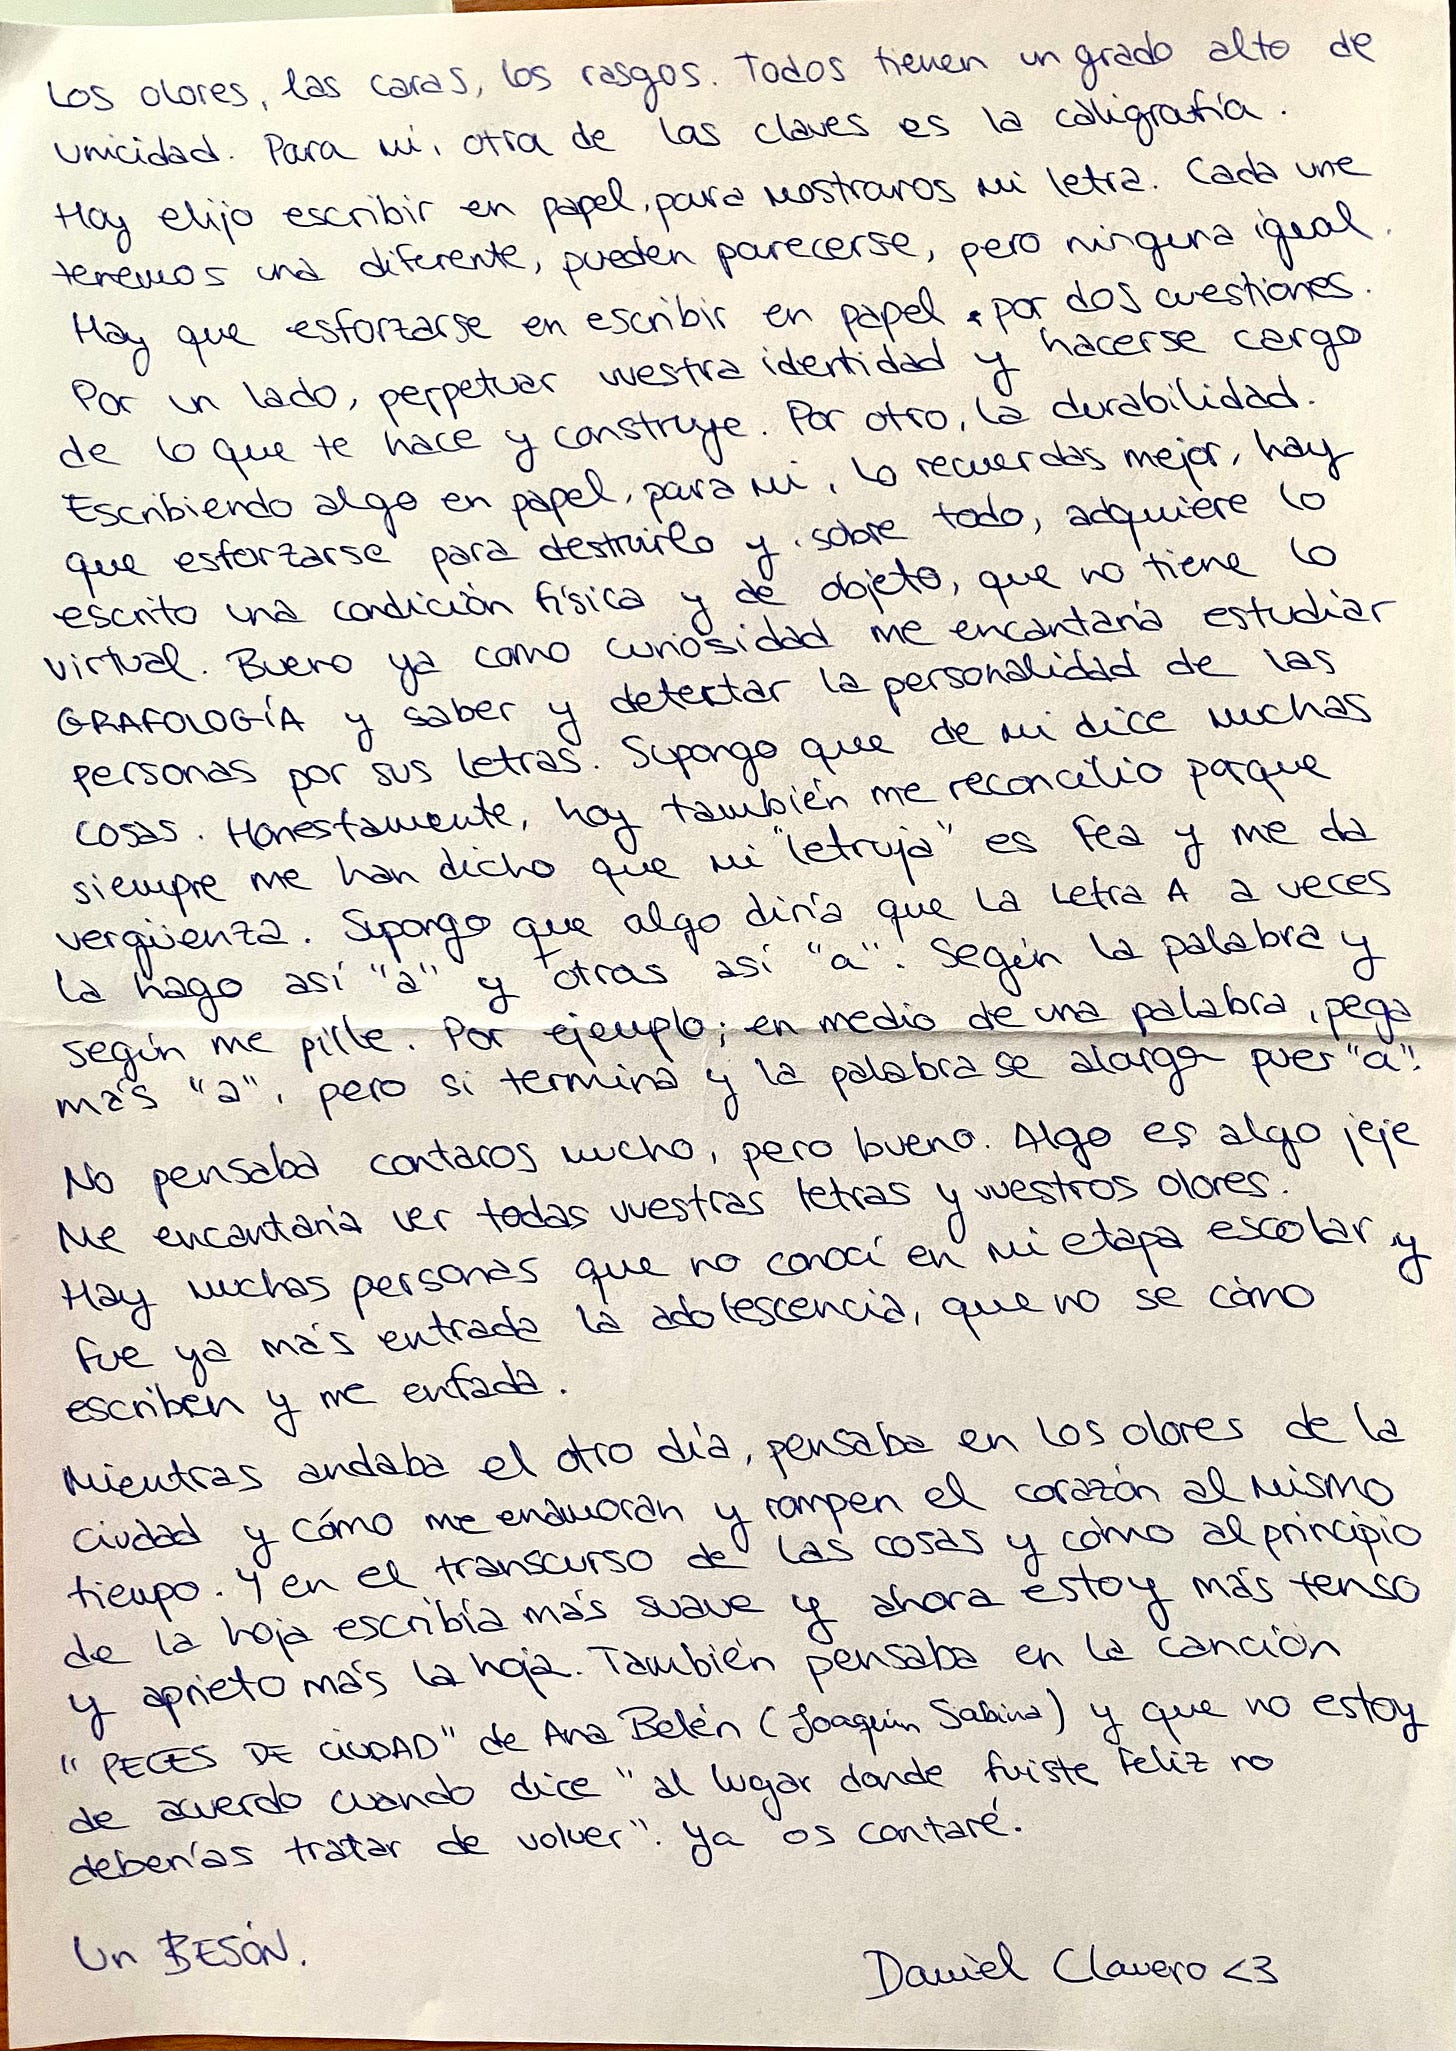 Los olores, las caras, los rasgos. Todos tienen un grado alto de
unicidad. Para mí, otra de las claves es la caligrafía.
Hoy elijo escribir en papel, para mostraros mi letra. Cada une
tenemos una diferente, pueden parecerse, pero ninguna igual.
Hay que esforzarse en escribir en papel por dos cuestiones.
Por un lado, perpetuar vuestra identidad y hacerse cargo
de lo que te hace y construye. Por otro, la durabilidad.
Escribiendo algo en papel, para mí, lo recuerdas mejor, hay
que esforzarse para destruirlo y sobre todo, adquiere lo
escrito una condición física y de objeto, que no tiene lo
virtual. Bueno ya como curiosidad me encantaría estudiar
GRAFOLOGÍA y saber y detectar la personalidad de las
personas por sus letras. Supongo que de mi dice muchas
cosas. Honestamente, hoy también me reconcilio porque
siempre me han dicho que mi "letruja" es fea y me da
vergüenza. Supongo que algo diría que la letra A a veces
la hago así "a" y otras así "a". Según la palabra y
según me pille. Por ejemplo; en medio de una palabra, pega
más "a", pero si termina y la palabra se alarga pues "a".
No pensaba contaros mucho, pero bueno. Algo es algo jeje
Me encantaría ver todas vuestras letras y vuestros olores.
Hay muchas personas que no conocí en mi etapa escolar y
fue ya más entrada la adolescencia, que no se cómo
escriben y me enfada.
Mientras andaba el otro día, pensaba en los olores de la
ciudad y cómo me enamoran y rompen el corazón al mismo
tiempo. Y en el transcurso de las cosas y cómo al principio
de la hoja escribía más suave y ahora estoy más tenso
y aprieto más la hoja. También pensaba en la canción
"PECES DE CIUDAD" de Ana Belén (Joaquín Sabina) y que no estoy
de acuerdo cuando dice "al lugar donde fuiste feliz no
deberías tratar de volver". Ya os contaré.
Un BESÓN.
Daniel Clavero <3